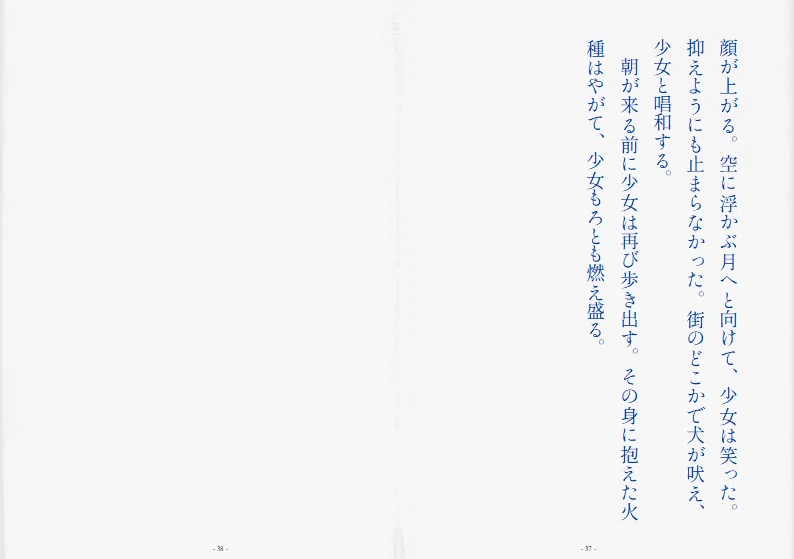 顔が上がる。空に浮かぶ月へと向けて、少女は笑った。
抑えようにも止まらなかった。街のどこかで犬が吠え、
少女と唱和する。
　朝が来る前に少女は再び歩き出す。その身に抱えた火
種はやがて、少女もろとも燃え盛る。
- 37 -
- 38 -